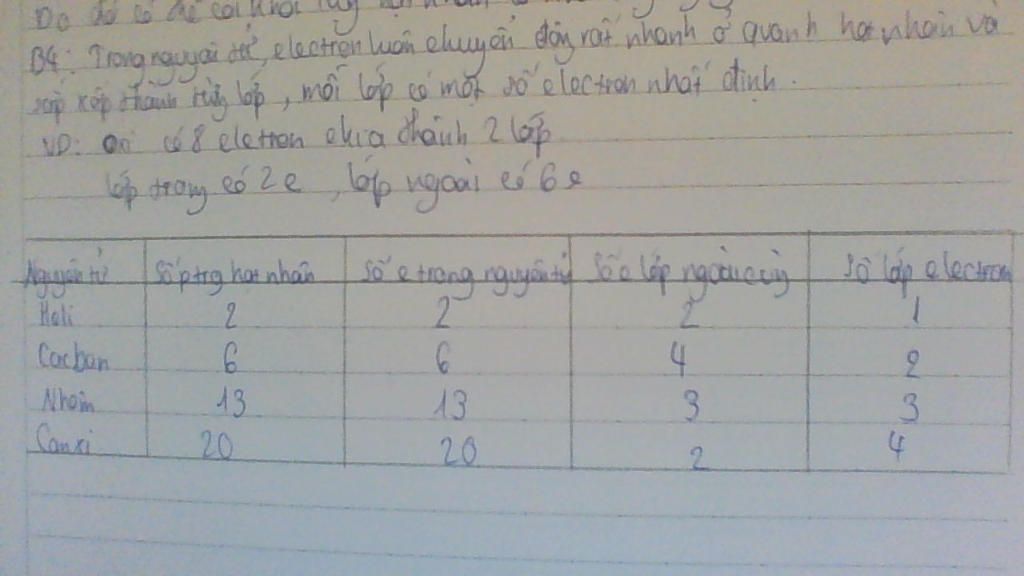 Do đó có thể coi khối
B4: Trong nguyên tử, electron luôn chuyển động rất nhanh ở quanh hạt nhân và
sắp xếp thành từng lớp, mỗi lớp có một số electron nhất định.
VD: có 8 eletron chia thành 2 lớp
lớp trong có 2e, lớp ngoài có 6e
Nguyên tử Số p trg hạt nhân Số e trong nguyên tử Số e lớp ngoài cùng Số lớp electron
Heli 2 2 2 1
Cacban 6 6 4 2
Nhôm 13 13 3 3
Canxi 20 20 2 4